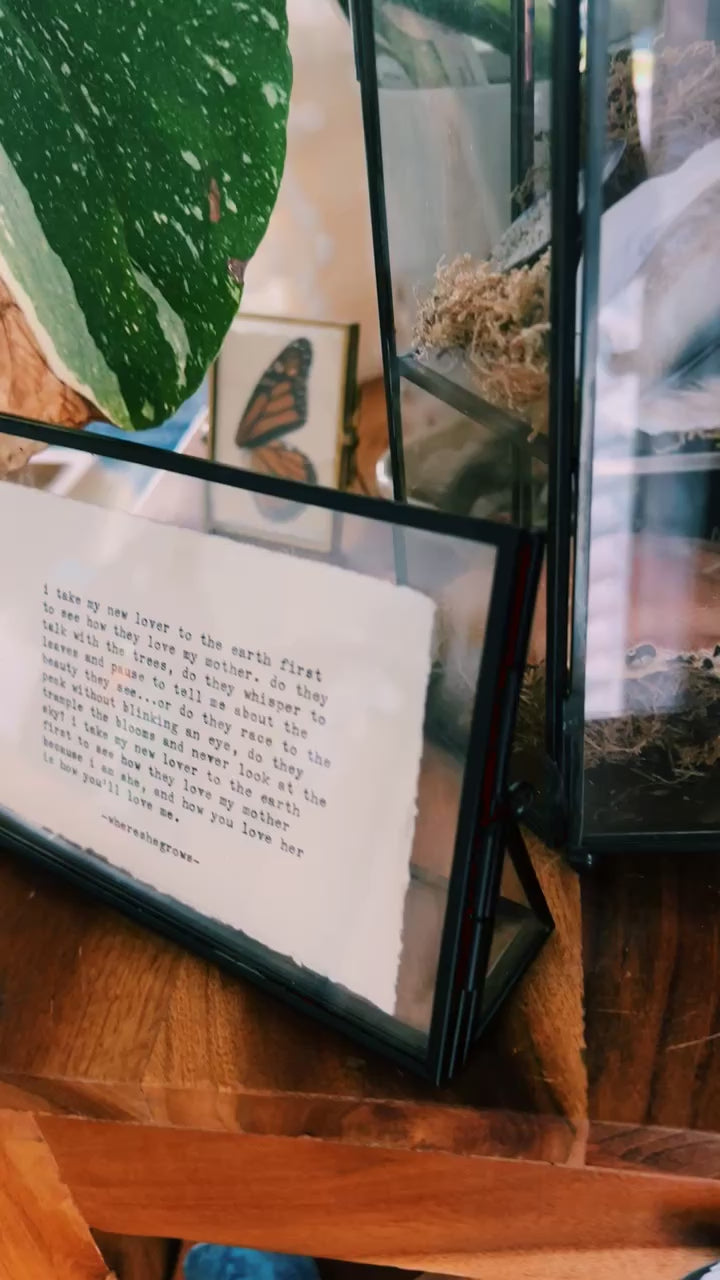 i take my new lover to the earth first
to see how they love my mother. do they
talk with the trees, do they whisper to
leaves and pause to tell me about the
beauty they see...or do they race to the
peak without blinking an eye, do they
trample the blooms and never look at the
sky? i take my new lover to the earth
first to see how they love my mother
because i am she, and how you love her
is how you'll love me.
-whereshegrows-